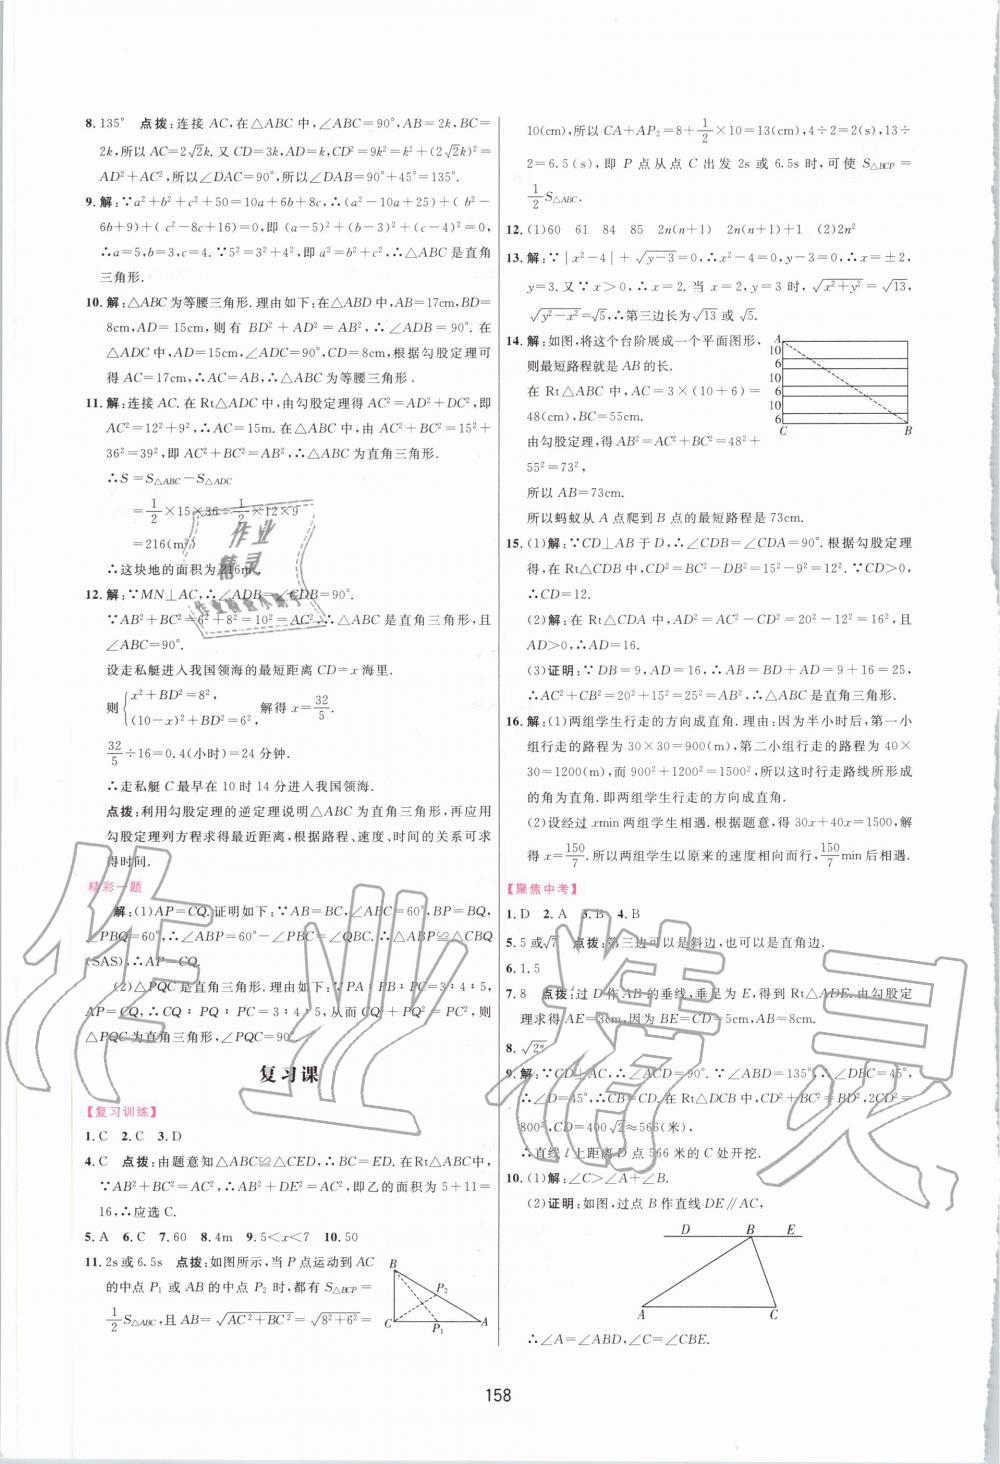 8. 135° 点拨:连接 AC,在△ABC 中,∠ABC=90°,AB=2k,BC=
2k,所以 AC=2√2k. 又 CD=3k,AD=k,CD²=9k²=k²+(2√2k)²=
AD²+AC²,所以∠DAC=90°,所以∠DAB=90°+45°=135°.
9. 解:∵a²+b²+c²+50=10a+6b+8c,∴(a²-10a+25)+(b²-
6b+9)+(c²-8c+16)=0,即(a-5)²+(b-3)²+(c-4)²=0,
∴a=5,b=3,c=4. ∵5²=3²+4²,即 a²=b²+c²,∴△ABC 是直角
三角形.
10. 解:△ABC 为等腰三角形. 理由如下:在△ABD 中,AB=17cm,BD=
8cm,AD=15cm,则有 BD²+AD²=AB²,∴∠ADB=90°. 在
△ADC 中,AD=15cm,∠ADC=90°,CD=8cm,根据勾股定理可
得 AC=17cm,∴AC=AB,∴△ABC 为等腰三角形.
11. 解:连接 AC. 在 Rt△ADC 中,由勾股定理得 AC²=AD²+DC²,即
AC²=12²+9²,∴AC=15m. 在△ABC 中,由 AC²+BC²=15²+
36²=39²,即 AC²+BC²=AB²,∴△ABC 为直角三角形.
∴S=S△ABC-S△ADC
=1/2×15×36-1/2×12×9
=216(m²)
∴这块地的面积为 216m².
12. 解:∵MN⊥AC,∴∠ADB=∠BDC=90°.
∵AB²+BC²=6²+8²=10²=AC²,∴△ABC 是直角三角形,且
∠ABC=90°.
设走私艇进入我国领海的最短距离 CD=x 海里.
则{x²+BD²=8², (10-x)²+BD²=6², 解得 x=32/5.
32/5÷16=0.4(小时)=24 分钟.
∴走私艇 C 最早在 10 时 14 分进入我国领海.
点拨:利用勾股定理的逆定理说明△ABC 为直角三角形,再应用
勾股定理列方程求得最近距离,根据路程、速度、时间的关系可求
得时间.
精彩一题
解:(1)AP=CQ. 证明如下:∵AB=BC,∠ABC=60°,BP=BQ,
∠PBQ=60°,∴∠ABP=60°-∠PBC=∠QBC. ∴△ABP≌△CBQ
(SAS),∴AP=CQ.
(2)△PQC 是直角三角形. 理由如下:∵PA∶PB∶PC=3∶4∶5,
AP=CQ,∴CQ∶PQ∶PC=3∶4∶5,从而 CQ²+PQ²=PC²,则
△PQC 为直角三角形,∠PQC=90°.
复习课
【复习训练】
1. C 2. C 3. D
4. C 点拨:由题意知△ABC≌△CED,∴BC=ED. 在Rt△ABC 中,
∵AB²+BC²=AC²,∴AB²+DE²=AC²,即乙的面积为 5+11=
16,∴应选 C.
5. A 6. C 7. 60 8. 4m 9. 5<x<7 10. 50
11. 2s或6.5s 点拨:如图所示,当 P 点运动到 AC
的中点 P₁ 或 AB 的中点 P₂ 时,都有 S△BCP=
1/2S△ABC,且 AB=√(AC²+BC²)=√(8²+6²)=
B
P₂
C
P₁
A
10(cm),所以 CA+AP₂=8+1/2×10=13(cm),4÷2=2(s),13÷
2=6.5(s),即 P 点从点 C 出发 2s 或 6.5s 时,可使 S△BCP=
1/2S△ABC.
12. (1)60 61 84 85 2n(n+1) 2n(n+1)+1 (2)2n²
13. 解:∵|x²-4|+√(y-3)=0,∴x²-4=0,y-3=0,∴x=±2,
y=3. 又∵x>0,∴x=2. 当 x=2,y=3 时,√(x²+y²)=√13,
√(y²-x²)=√5,∴第三边长为√13 或√5.
14. 解:如图,将这个台阶展成一个平面图形,
则最短路程就是 AB 的长.
在 Rt△ABC 中,AC=3×(10+6)=
48(cm),BC=55cm.
由勾股定理,得 AB²=AC²+BC²=48²+
55²=73²,
所以 AB=73cm.
所以蚂蚁从 A 点爬到 B 点的最短路程是 73cm.
A
10
6
10
6
10
6
C
B
15. (1)解:∵CD⊥AB 于 D,∴∠CDB=∠CDA=90°. 根据勾股定理
得,在 Rt△CDB 中,CD²=BC²-DB²=15²-9²=12². ∵CD>0,
∴CD=12.
(2)解:在 Rt△CDA 中,AD²=AC²-CD²=20²-12²=16²,且
AD>0,∴AD=16.
(3)证明:∵DB=9,AD=16,∴AB=BD+AD=9+16=25,
∴AC²+CB²=20²+15²=25²=AB²,∴△ABC 是直角三角形.
16. 解:(1)两组学生行走的方向成直角. 理由:因为半小时后,第一小
组行走的路程为 30×30=900(m),第二小组行走的路程为 40×
30=1200(m),而 900²+1200²=1500²,所以这时行走路线所形成
的角为直角. 即两组学生行走的方向成直角.
(2)设经过 xmin 两组学生相遇. 根据题意,得 30x+40x=1500,解
得 x=150/7. 所以两组学生以原来的速度相向而行,150/7min后相遇.
【聚焦中考】
1. D 2. A 3. B 4. B
5. 5 或√7 点拨:第三边可以是斜边,也可以是直角边.
6. 1.5
7. 8 点拨:过 D 作 AB 的垂线,垂足为 E,得到 Rt△ADE. 由勾股定
理求得 AE=3cm,因为 BE=CD=5cm,AB=8cm.
8. √2ⁿ
9. 解:∵CD⊥AC,∴∠ACD=90°. ∵∠ABD=135°,∴∠DBC=45°,
∴∠D=45°,∴CB=CD. 在 Rt△DCB 中,CD²+BC²=BD²,2CD²=
800²,CD=400√2≈566(米),
∴直线 l 上距离 D 点 566 米的 C 处开挖.
10. (1)解:∠C>∠A+∠B.
(2)证明:如图,过点 B 作直线 DE∥AC,
D B E
A C
∴∠A=∠ABD,∠C=∠CBE.
158
作业精灵
作业
精灵